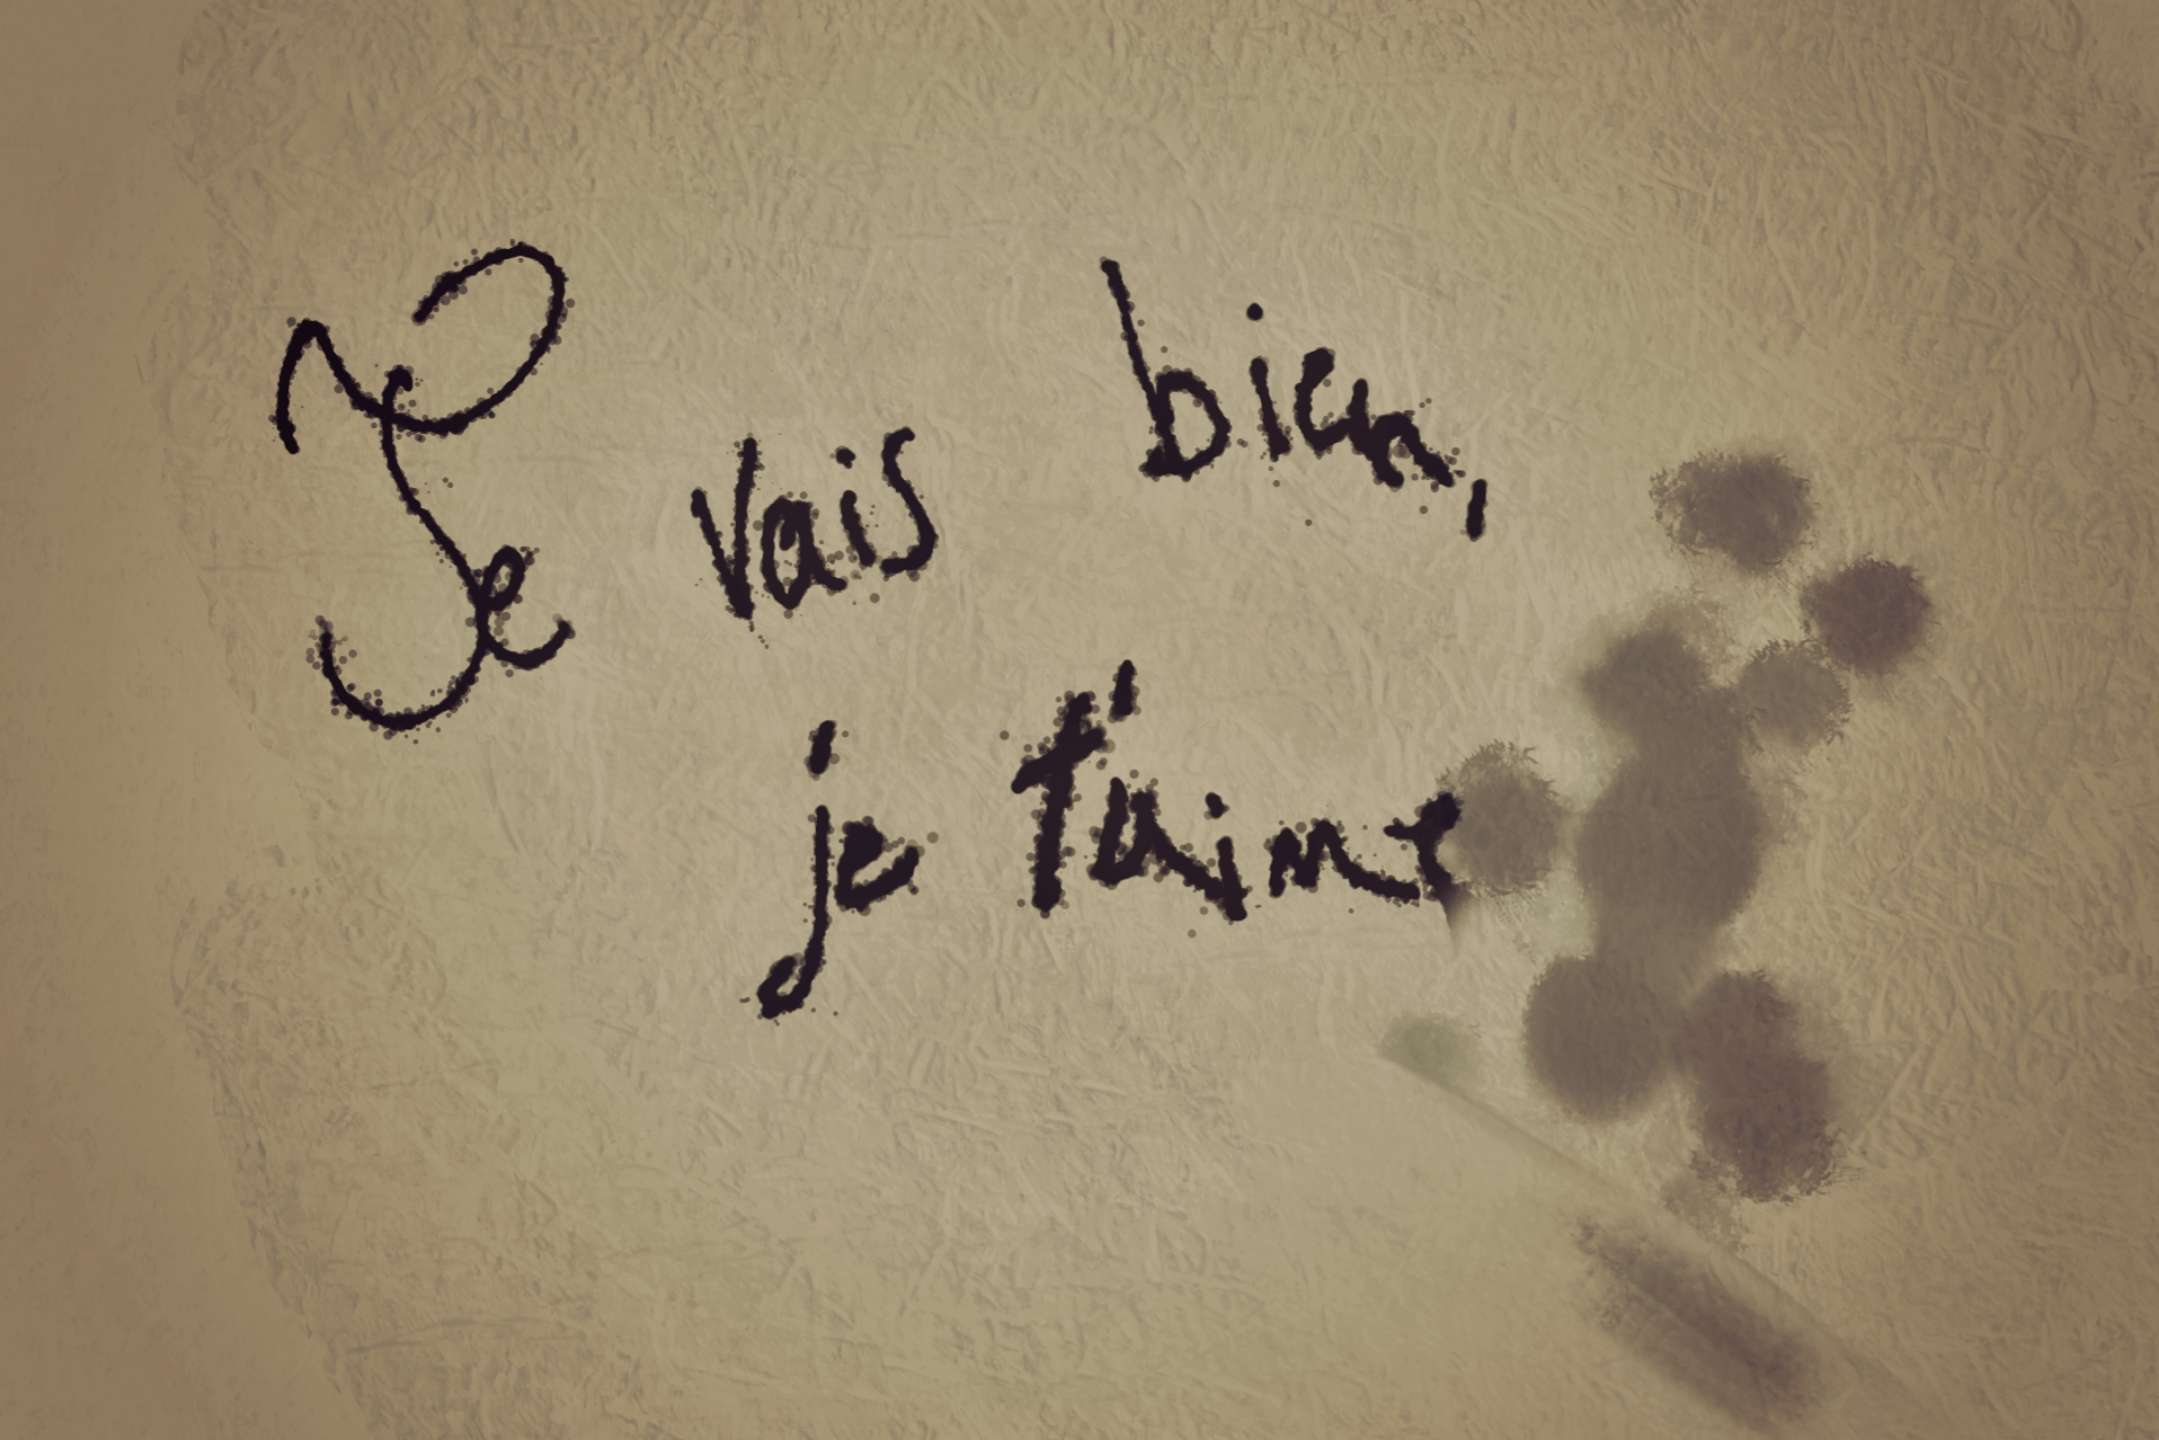 Je vais bien,
je t'aime